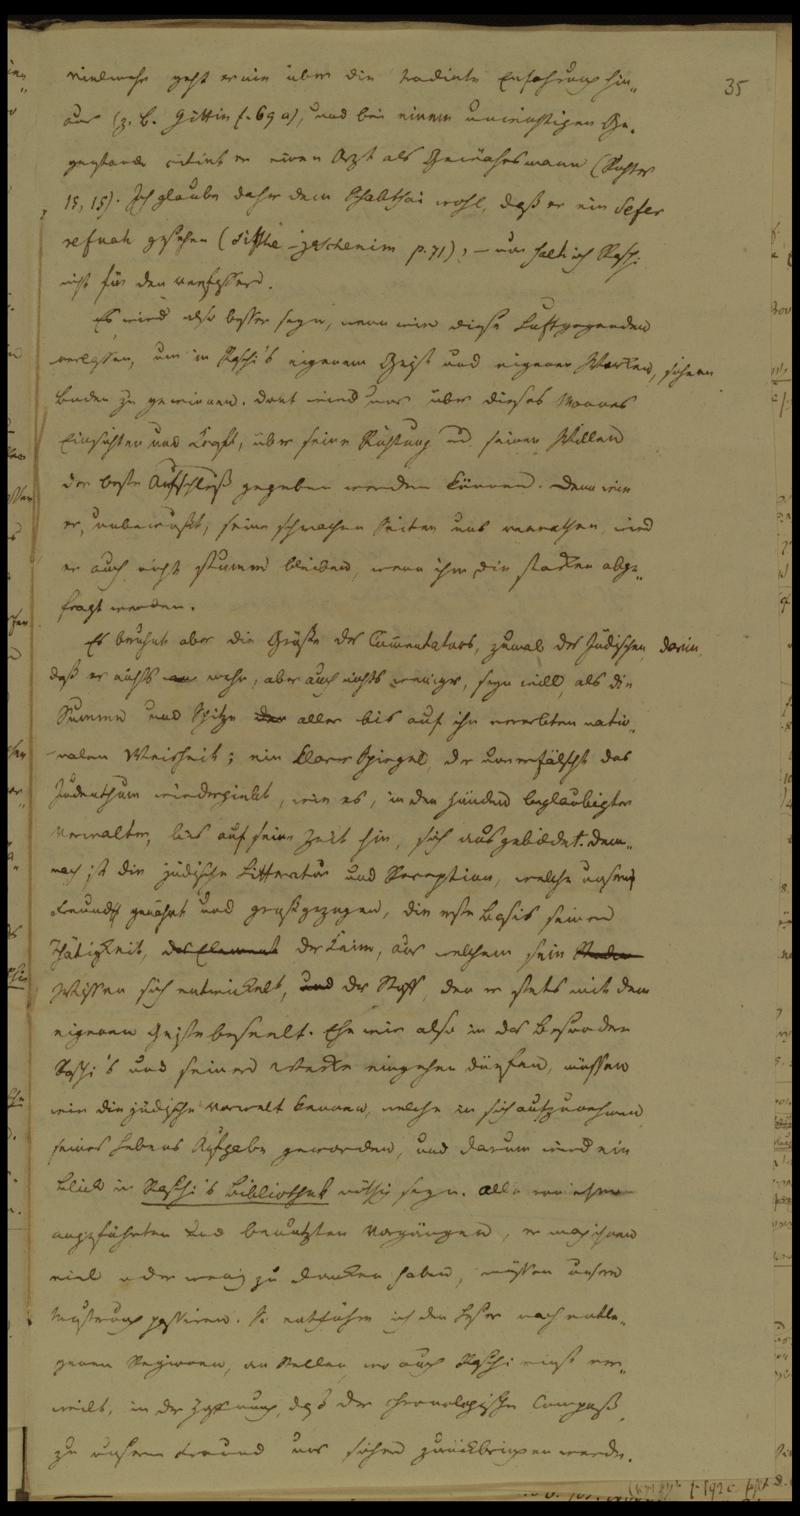 35
vielmehr geht er nie über die tradirte Erfahrung hin„
aus (z. B. Gittin f. 69 a), und bei einem unwichtigen Ge„
genstande citirt er einen Arzt als Gewährsmann (Richter
15, 15). Ich glaube daher dem Schabthai wohl, daß er ein Sefer
refuah gesehen (Sifthe jeschenim p. 71), – nur halt ich Raschi
nicht für den Verfasser.
Es wird also besser seyn, wenn wir diese Luftgegenden
verlassen, um in Raschi's eigenem Geist und eigenen Werken, sichern
Boden zu gewinnen. Dort wird uns über dieses Mannes
Einsichten und Kraft, über seine Richtung und seinen Willen
der beste Aufschluß gegeben werden können. Denn wie
er, unbewußt, seine schwachen Seiten uns verrathen, wird
er auch nicht stumm bleiben, wenn ihm die starken abge„
fragt werden.
Es beruht aber die Größe des Commentators, zumal des Jüdischen, darin,
daß er nichts mehr, aber auch nichts weniger, seyn will, als die
Summe und Spitze der aller bis auf ihn vererbten natio„
nalen Weisheit; ein klarer Spiegel, der unverfälscht das
Judenthum wiedergiebt, wie es, in den Händen beglaubigter
Verwalter, bis auf seine Zeit hin, sich ausgebildet. Dem„
nach ist die jüdische Litteratur und Reception, welche unsern
Freund genährt und großgezogen, die erste Basis seiner
Thätigkeit, das Element der Keim, aus welchem sein
Wissen sich entwickelt, und der Stoff, den er stets mit dem
eigenen Geiste beseelt. Ehe wir also in das Besondere
Raschi's und seiner Werke eingehen dürfen, müssen
wir die jüdische Vorwelt kennen, welche in sich aufzunehmen
seines Lebens Aufgabe geworden, und darum wird ein
Blick in Raschi's Bibliothek nöthig seyn. Alle von ihm
angeführten und benutzten Vorgänger, er mag ihnen
viel oder wenig zu danken haben, müssen unsere
Musterung passiren. So entführe ich den Leser nach entle„
genen Regionen, an Stellen, wo auch Raschi einst ver„
weilt, in der Hoffnung, daß der chronologische Compaß,
zu unserm Freund uns sicher zurückbringen werde.